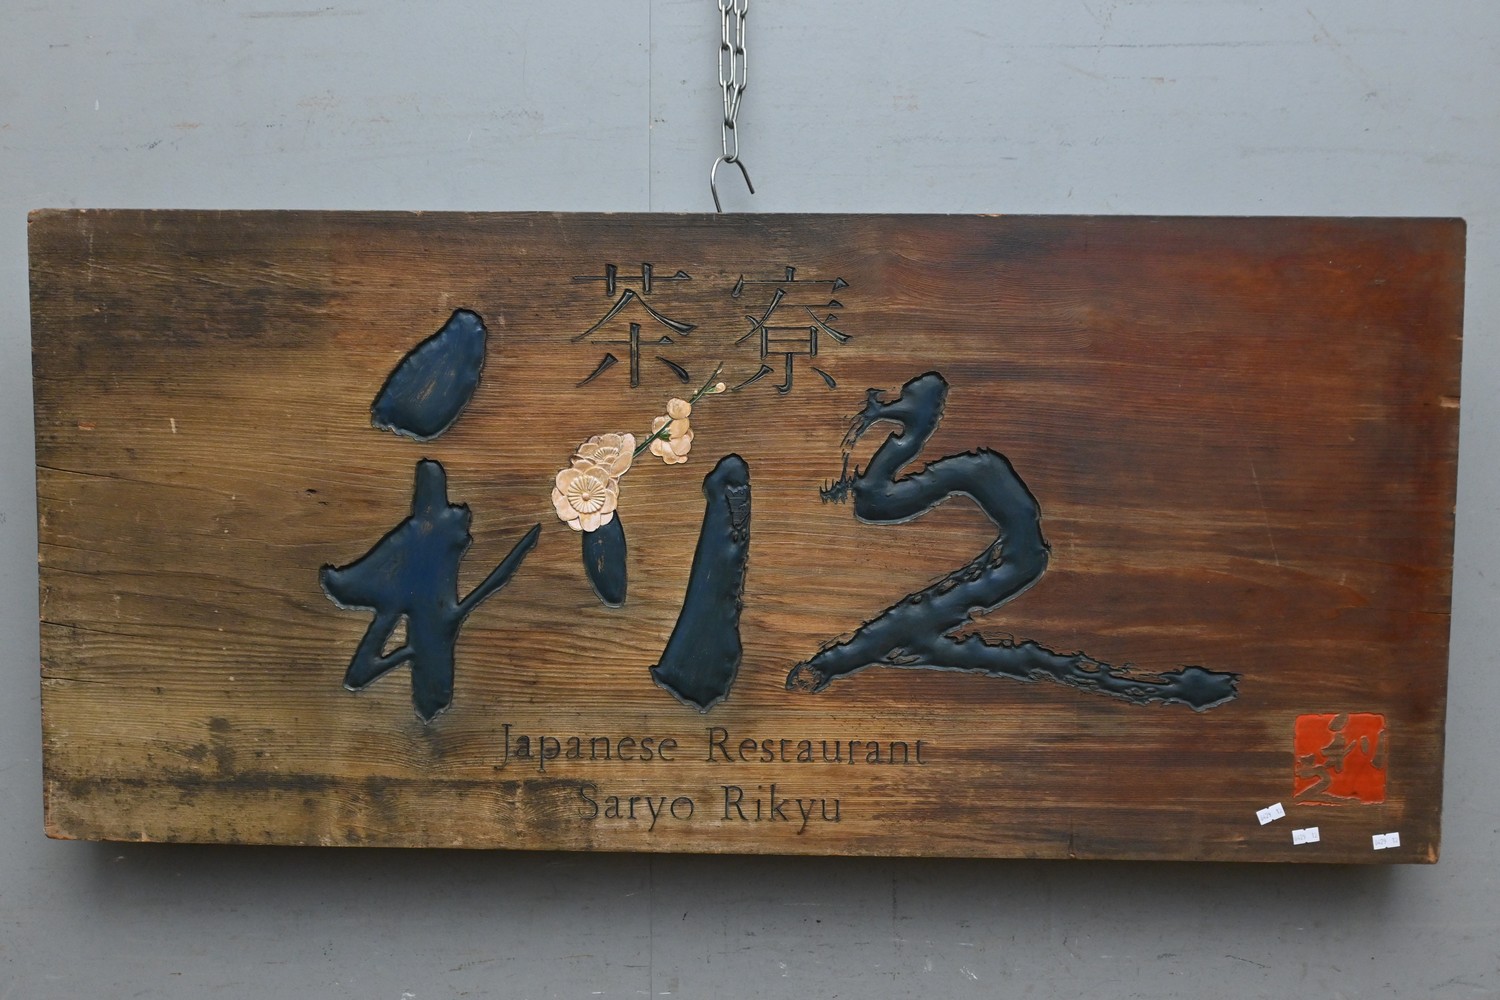 茶寮
利久
Japanese Restaurant
Saryo Rikyu
利久